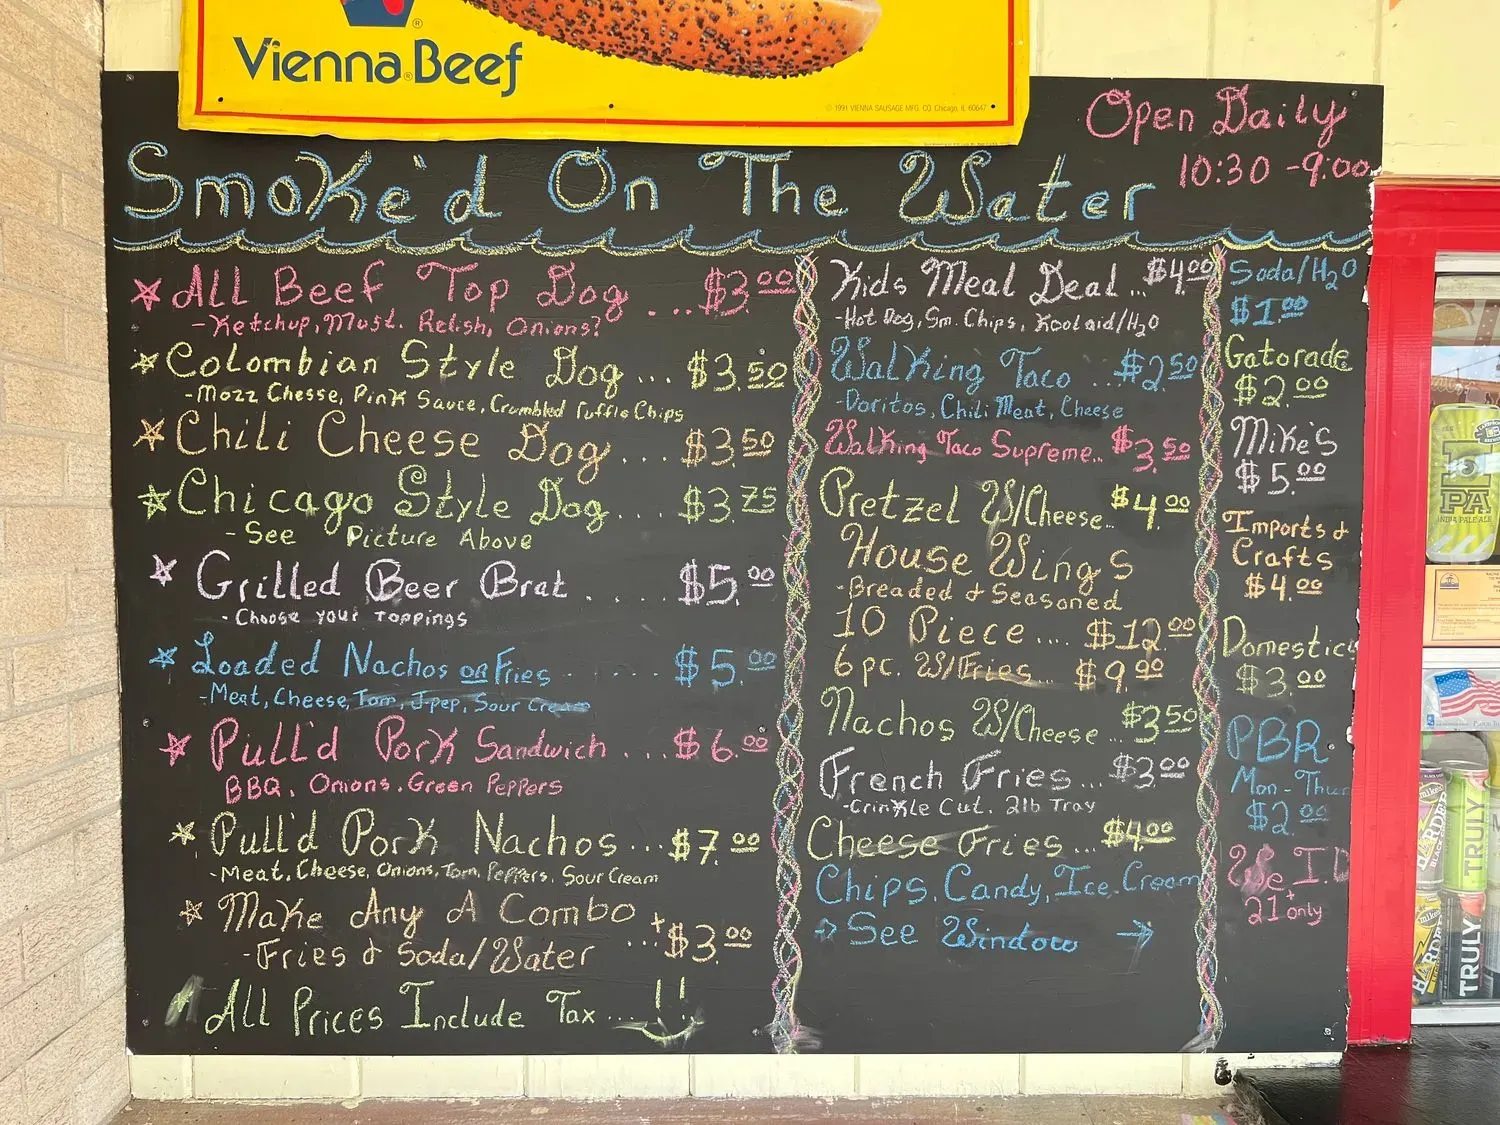 Vienna® Beef
©1991 VIENNA SAUSAGE MFG. CO. Chicago, IL 60647
Open Daily
10:30 - 9:00
Smoke'd On The Water
All Beef Top Dog ... $3.00
- Ketchup, Must. Relish, Onions?
Colombian Style Dog ... $3.50
- Mozz Chesse, Pink Sauce, Crumbled Ruffle Chips
Chili Cheese Dog ... $3.50
Chicago Style Dog ... $3.75
- See Picture Above
Grilled Beer Brat .... $5.00
- Choose your Toppings
Loaded Nachos or Fries ..... $5.00
- Meat, Cheese, Tom, J-pep, Sour Cream
Pull'd Pork Sandwich .... $6.00
BBQ, Onions, Green Peppers
Pull'd Pork Nachos ... $7.00
- Meat, Cheese, Onions, Tom, Peppers, Sour Cream
Make Any A Combo ... + $3.00
- Fries & Soda/Water
All Prices Include Tax ... !!
Kids Meal Deal ... $4.00
- Hot Dog, Sm. Chips, Koolaid/H2O
Walking Taco ... $2.50
- Doritos, Chili Meat, Cheese
Walking Taco Supreme.. $3.50
Pretzel W/Cheese.. $4.00
House Wings
- Breaded & Seasoned
10 Piece .... $12.00
6 pc. W/Fries... $9.00
Nachos W/Cheese .. $3.50
French Fries ... $3.00
- Crinkle Cut, 2lb Tray
Cheese Fries ... $4.00
Chips, Candy, Ice Cream
See Window
Soda/H2O
$1.00
Gatorade
$2.00
Mike's
$5.00
Imports &
Crafts
$4.00
Domestics
$3.00
PBR
Mon - Thur
$2.00
We I.D
21+ only
IPA
INDIA PALE ALE
HARDER
TRULY
HARDER
TRULY